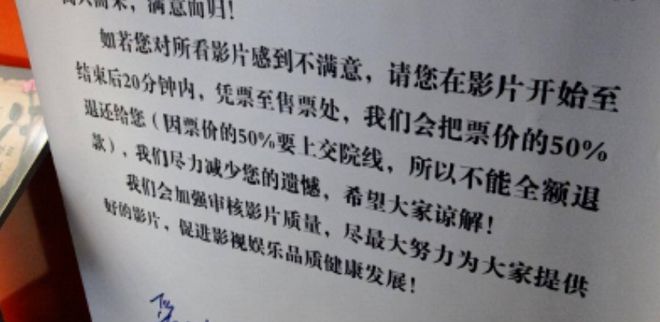 而来，满意而归！
如若您对所看影片感到不满意，请您在影片开始至
结束后20分钟内，凭票至售票处，我们会把票价的50%
退还给您（因票价的50%要上交院线，所以不能全额退
款），我们尽力减少您的遗憾，希望大家谅解！
我们会加强审核影片质量，尽最大努力为大家提供
好的影片，促进影视娱乐品质健康发展！